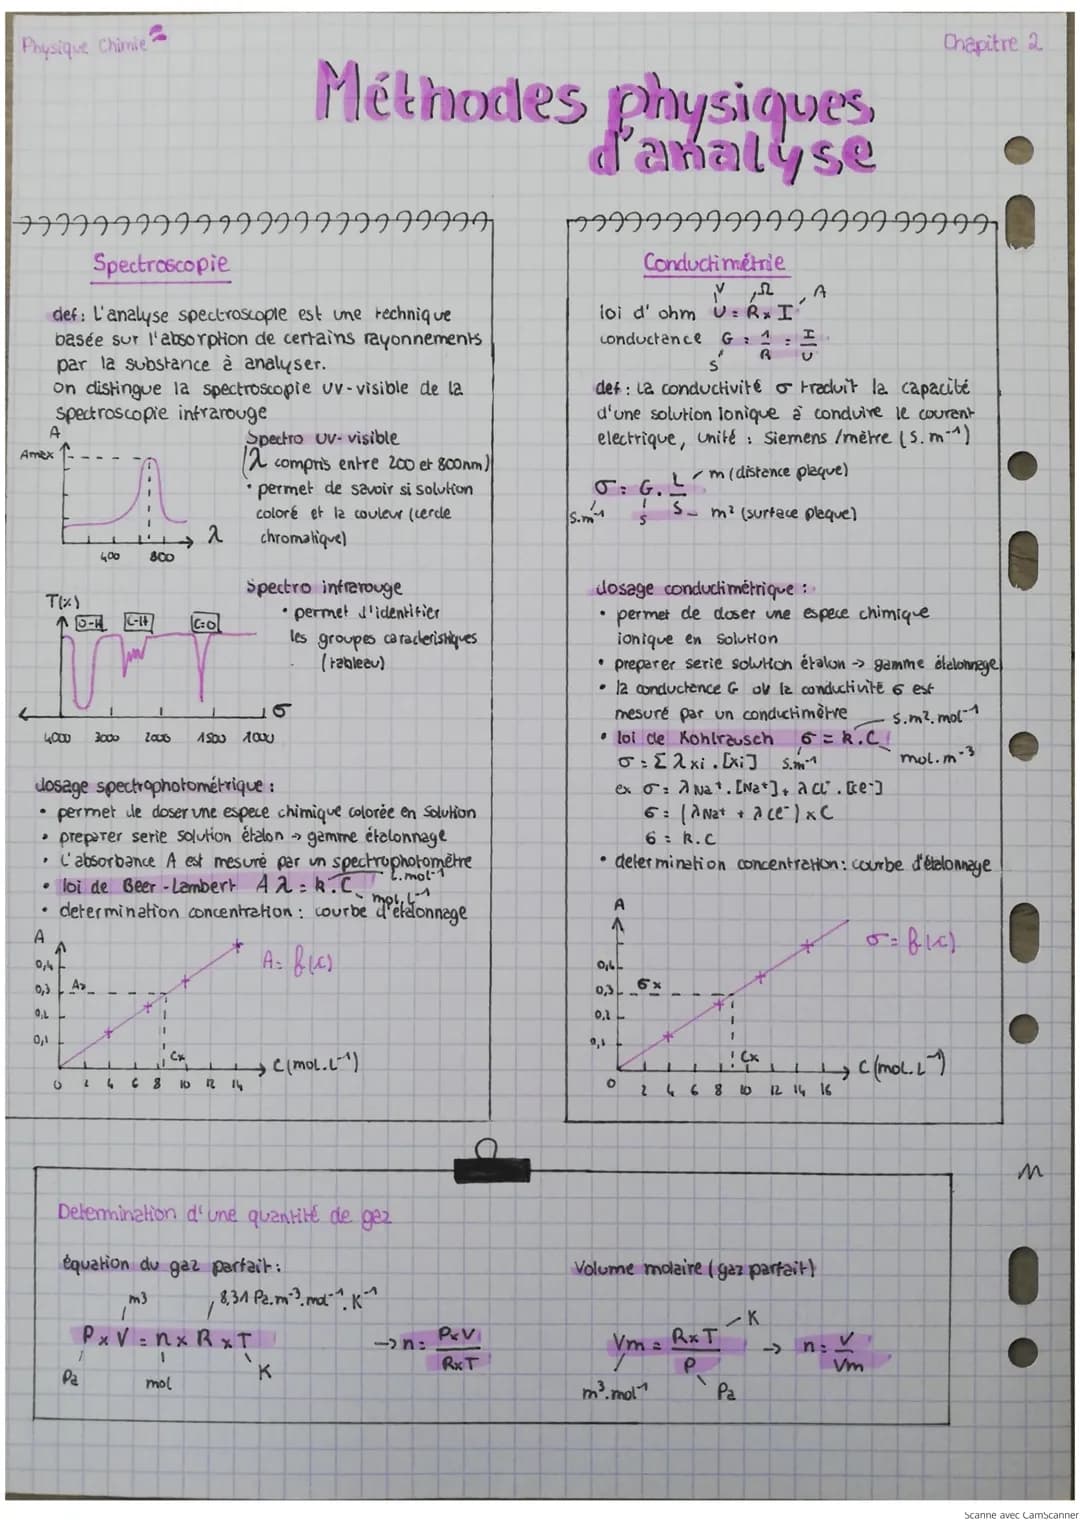 Physique Chimie
Chapitre 2
Méthodes physiques
d'analyse
Spectroscopie
def: L'analyse spectroscopie est une technique
basée sur l'absorption de certains rayonnements
par la substance à analyser.
On distingue la spectroscopie UV-visible de la
spectroscopie infrarouge
A
Amax
400 800 λ
Spectro UV-visible
(λ compris entre 200 et 800nm)
• permet de savoir si solution
coloré et la couleur (cercle
chromatique)
T(%)
O-H C-H C=O
σ
4000 3000 2000 1500 1000
Spectro infrarouge
• permet d'identifier
les groupes caracteristiques
(tableau)
dosage spectrophotométrique :
• permet de doser une espece chimique colorée en solution
• preparer serie solution étalon → gamme étalonnage
• L'absorbance A est mesuré par un spectrophotomètre
• loi de Beer-Lambert Aλ = k.C L.mol⁻¹
mol.L⁻¹
• determination concentration : courbe d'étalonnage
A
0,4
0,3
0,2
0,1
Cx
0 2 4 6 8 10 12 14
C(mol.L⁻¹)
A = f(C)
Conductimétrie
V Ω A
loi d'ohm U = R x I
conductance G = 1/R = I/U
S
def : La conductivité σ traduit la capacité
d'une solution ionique à conduire le courant
electrique, unité : Siemens/mètre (S.m⁻¹)
σ = G. L/S
m (distance plaque)
m² (surface plaque)
S.m⁻¹ S
dosage conductimétrique :
• permet de doser une espece chimique
ionique en solution
• preparer serie solution étalon -> gamme étalonnage
• la conductance G ou la conductivité σ est
mesuré par un conductimètre S.m².mol⁻¹
• loi de Kohlrausch σ = k.C
S.m⁻¹ mol.m⁻³
σ = Σ λxi.[xi]
ex σ = λNa⁺.[Na⁺] + λCl⁻.[Cl⁻]
σ = (λNa⁺ + λCl⁻) x C
σ = k.C
• determination concentration : courbe d'étalonnage
A
0,3 σx
0,2
0,1
Cx
0 2 4 6 8 10 12 14 16
C(mol.L⁻¹)
σ = f(C)
Determination d'une quantité de gaz
équation du gaz parfait :
m3 8,31 Pa.m⁻³.mol⁻¹.K⁻¹
P x V = n x R x T
Pa mol K
→ n = PxV/RxT
Volume molaire (gaz parfait)
K
Vm = RxT/P → n = V/Vm
m³.mol⁻¹ Pa
Scanné avec CamScanner